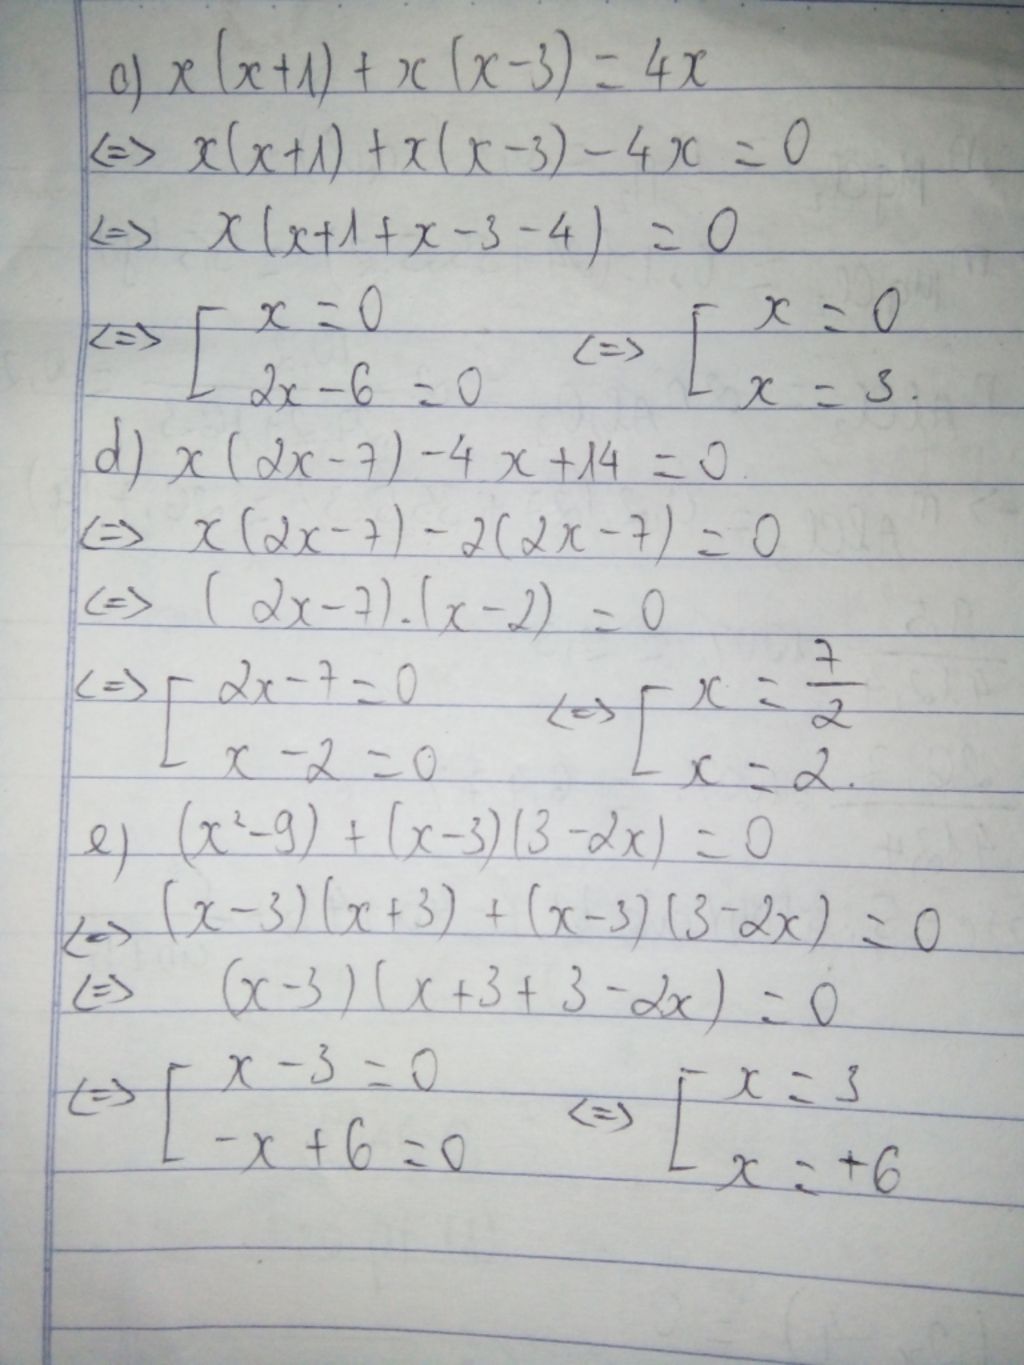 c) x(x+1) + x(x-3) = 4x
<=> x(x+1) + x(x-3) - 4x = 0
<=> x(x+1+x-3-4) = 0
<=> [ x = 0 <=> [ x = 0
2x-6 = 0 x = 3.
d) x(2x-7) - 4x + 14 = 0.
<=> x(2x-7) - 2(2x-7) = 0
<=> (2x-7).(x-2) = 0
<=> [ 2x-7 = 0 <=> [ x = 7/2
x-2 = 0 x = 2.
e) (x²-9) + (x-3)(3-2x) = 0
<=> (x-3)(x+3) + (x-3)(3-2x) = 0
<=> (x-3)(x+3+3-2x) = 0
<=> [ x-3 = 0 <=> [ x = 3
-x+6 = 0 x = +6